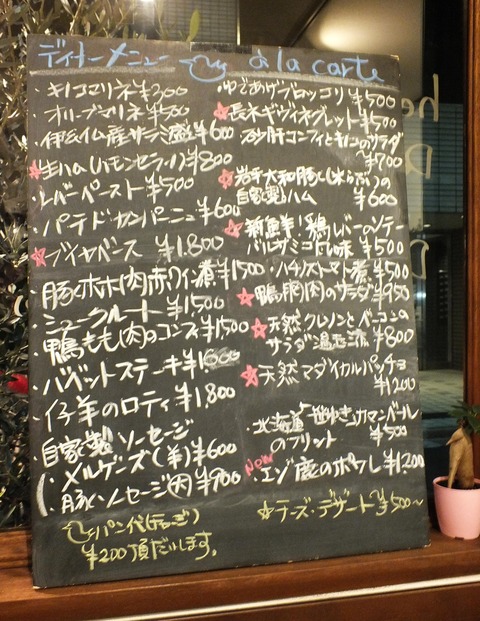 ディナーメニュー
a la carte
・キノコマリネ ¥300
・オリーブマリネ ¥500
・伊仏産サラミ盛 ¥600
☆生ハム(ハモンセラーノ) ¥800
・レバーペースト ¥500
・パテドカンパーニュ ¥600
☆ブイヤベース ¥1.800
・豚ホホ肉赤ワイン煮 ¥1500
・シュークルート ¥1500
・鴨もも肉のコンフィ ¥1500
・バベットステーキ
・仔羊のロティ ¥1,800
・自家製ソーセージ
・メルゲーズ(羊) ¥600
・豚ソーセージ ¥900
パン代
¥200頂だいします。
・ゆであげブロッコリ ¥500
☆長ネギヴィネグレット ¥500
・砂肝コンフィときのこのサラダ
¥700
☆岩手大和豚
自家製ハム ¥600
☆新鮮!鶏レバーのソテー
バルサミコ風味 ¥500
・ハチノストマト煮 ¥500
☆鴨胸肉のサラダ ¥950
☆天然クレソンとベーコンの
サラダ温玉添 ¥800
☆天然マダイカルパッチョ
¥1200
・北海道 笹ゆきカマンベール
のフリット ¥500
NOW
・エゾ鹿のポワレ ¥1200
☆チーズ・デザート ¥500〜
he